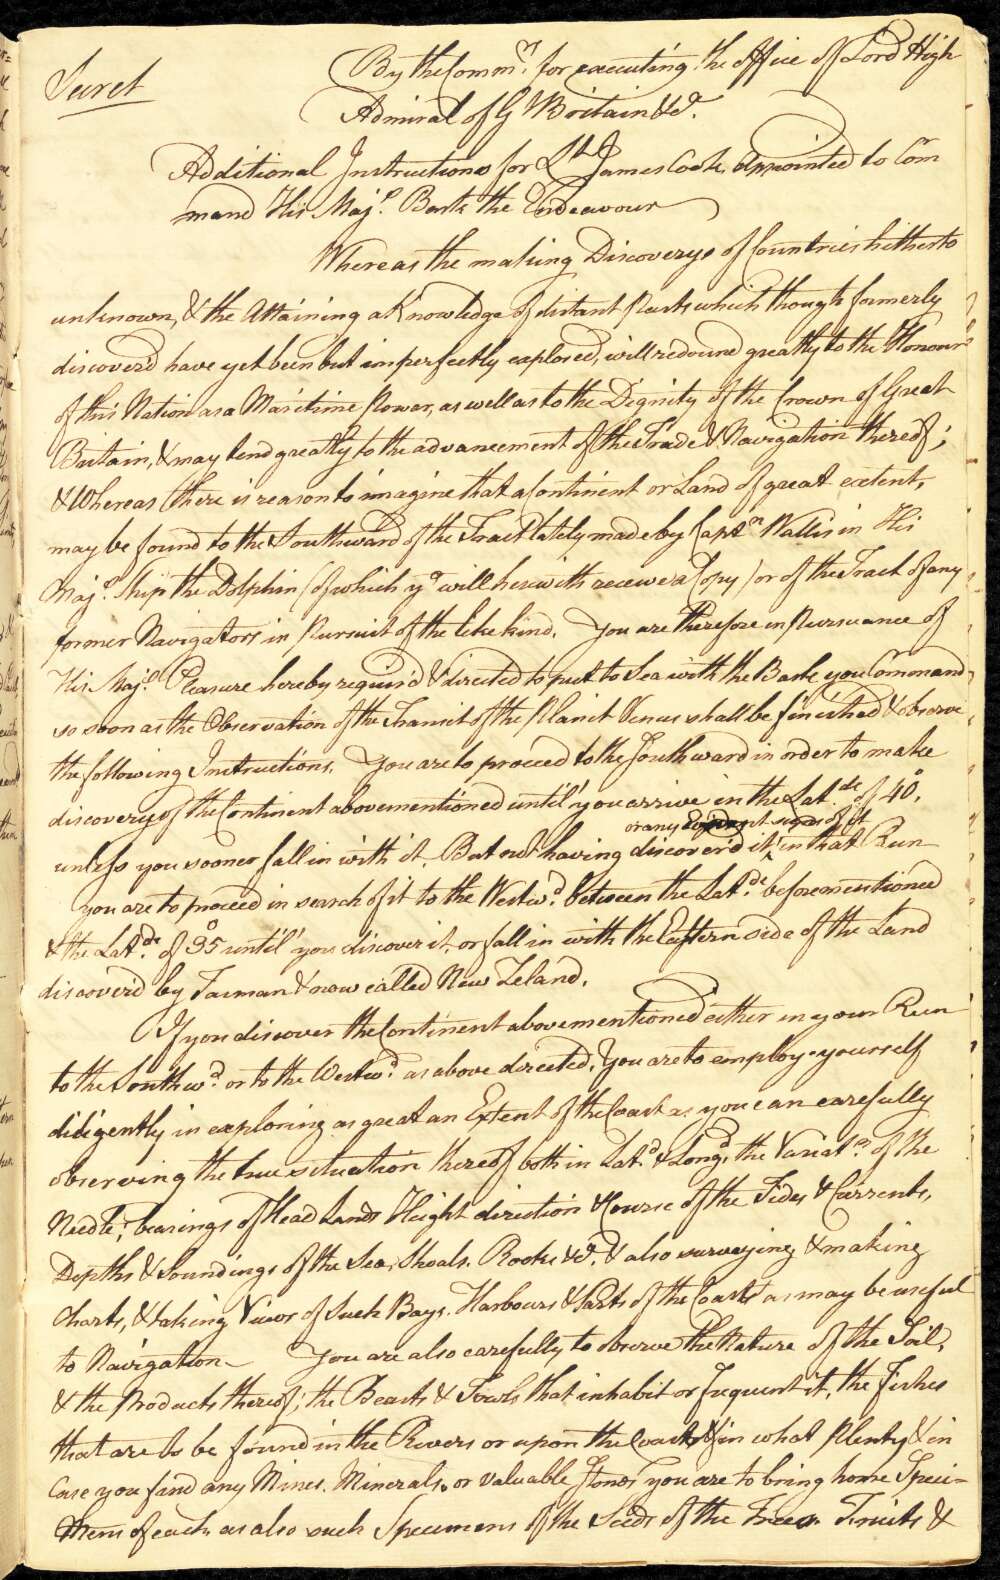 Secret
By the Commrs. for executing the office of Lord High
Admiral of G Britain &ca.
Additional Instructions for Lt. James Cook, Appointed to Com
mand His Maj's. Bark the Endeavour
Whereas the making Discoverys of Countries hitherto
unknown, & the Attaining a Knowledge of distant Parts which though formerly
discover'd have yet been but imperfectly explored, will redound greatly to the Honour
of this Nation as a Maritime Power, as well as to the Dignity of the Crown of Great
Britain, & may tend greatly to the advancement of the Trade & Navigation thereof;
& Whereas there is reason to imagine that a Continent or Land of great extent,
may be found to the Southward of the Tract lately made by Captn. Wallis in His
Maj's. Ship the Dolphin (of which yo will herewith receive a Copy) or of the Tract of any
former Navigators in Pursuit of the like kind. You are therefore in Pursuance of
His Maj's. Pleasure hereby requir'd & directed to put to Sea with the Bark you Command
so soon as the Observation of the Transit of the Planet Venus shall be finished & observe
the following Instructions. You are to proceed to the Southward in order to make
discovery of the Continent abovementioned until' you arrive in the Latde. of 40°,
unless you sooner fall in with it. But not having discover'd it or any Evident signs of it in that Run
you are to proceed in search of it to the Westwd. between the Latde. beforementioned
& the Latde. of 35° until' you discover it, or fall in with the Eastern side of the Land
discover'd by Tasman & now called New Zeland.
If you discover the Continent abovementioned either in your Run
to the Southwd. or to the Westwd. as above directed, You are to employ yourself
diligently in exploring as great an Extent of the Coast as you can carefully
observing the true situation thereof both in Latd. & Longd. the Variatn. of the
Needle; bearings of Head Lands Height direction & Course of the Tides & Currents,
Depths & Soundings of the Sea, Shoals, Rocks &ca. & also surveying & making
Charts, & taking Views of Such Bays, Harbours & Parts of the Coasts as may be useful
to Navigation. You are also carefully to observe the Nature of the Soil,
& the Products thereof; the Beasts & Fowls that inhabit or frequent it, the Fishes
that are to be found in the Rivers or upon the Coast & in what Plenty & in
Case you find any Mines, Minerals, or valuable Stones you are to bring home Speci-
mens of each, as also such Specimens of the Seeds of the Trees Fruits &